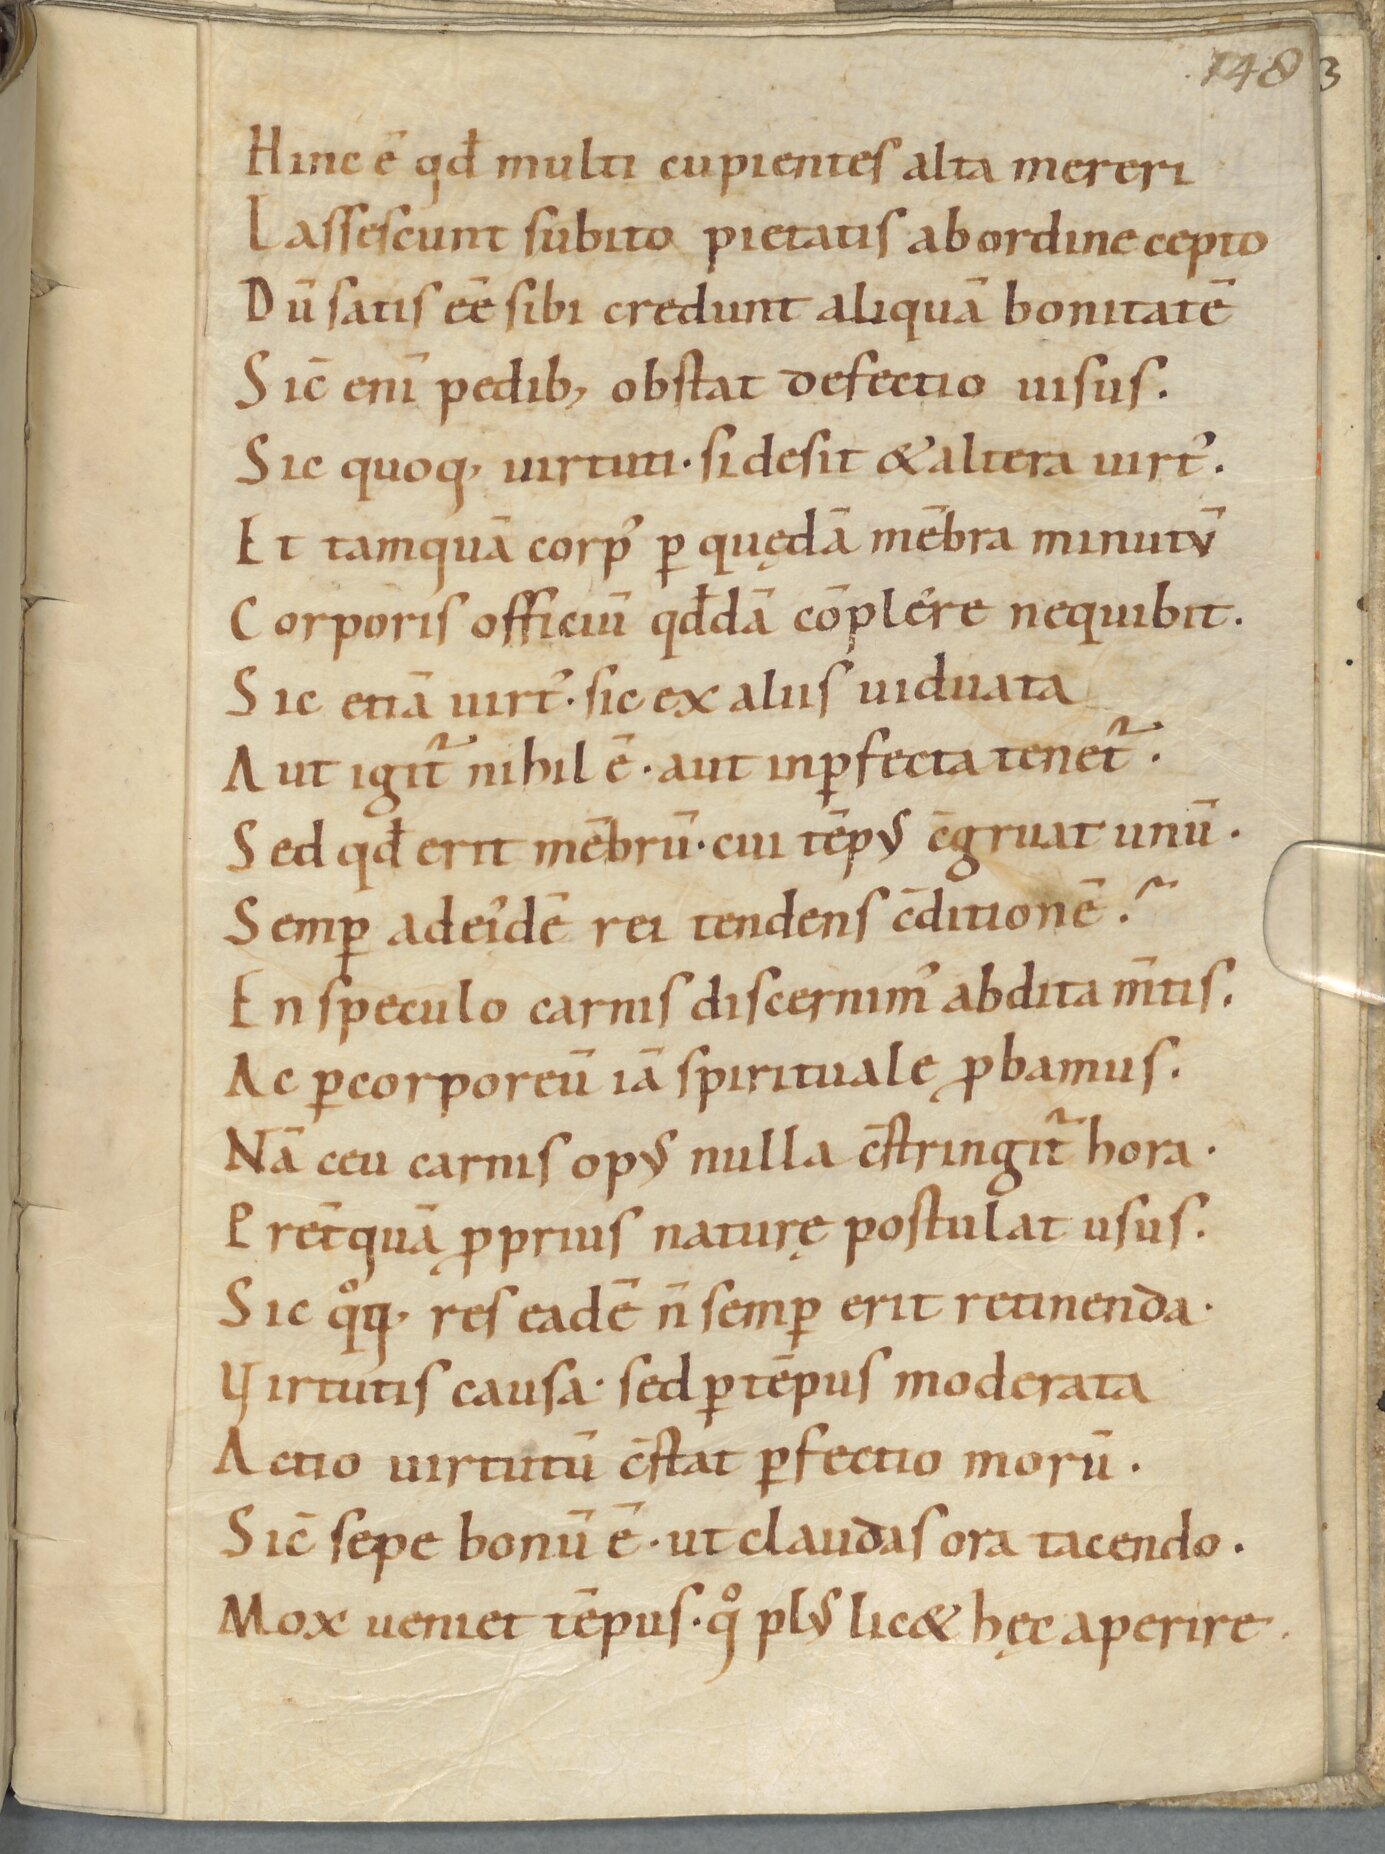 148
3
Hinc ē qđ multi cupientes alta mereri
Lassescunt subito pietatis ab ordine cepto
Dū satis eē sibi credunt aliquā bonitatē
Sic̄ enī pedib; obstat defectio uisus.
Sic quoq; uirtuti· si desit & altera uirtꝰ.
Et tamquā corpꝰ ꝑ quędā mēbra minutū
Corporis officiū qđdā cōplére nequibit.
Sic etiā uirtꝰ· sic ex aliis uiduata
Aut igit᷑ nihil ē· aut inꝑfecta tenet᷑.
Sed qđ erit mēbrū· cui tēpꝰ c̄gruat unū·
Semꝑ ad eīdē rei tendens c̄ditionē.
En speculo carnis discernimꝰ abdita m̄tis.
Ac ꝑ corporeū iā spirituale ꝓbamus.
Nā ceu carnis opꝰ nulla c̄stringit᷑ hora·
Pret̄quā ꝓprius naturę postulat usus.
Sic qͦq; res eadē n̄ semꝑ erit retinenda·
Virtutis causa· sed ꝑ tēpus moderata
Actio uirtutū c̄stat ꝑfectio morū·
Sic̄ sepe bonū ē· ut claudas ora tacendo·
Mox ueniet tēpus· qͦ plꝰ lic& hęc aperire.